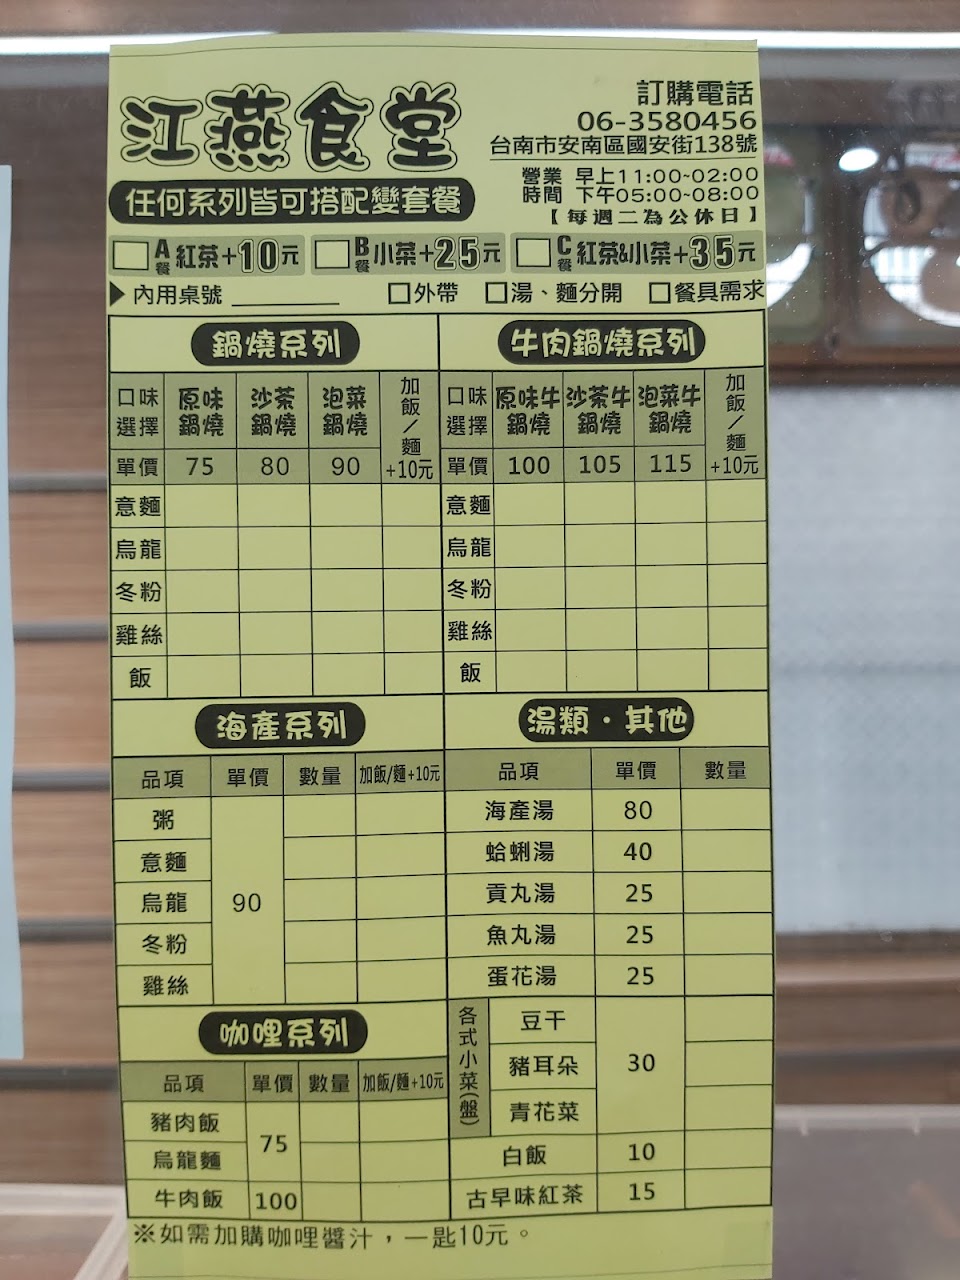 江燕食堂
訂購電話
06-3580456
台南市安南區國安街138號
任何系列皆可搭配變套餐
營業時間 早上11:00~02:00
下午05:00~08:00
【每週二為公休日】
A餐 紅茶+10元 B餐 小菜+25元 C餐 紅茶&小菜+35元
▶內用桌號 ________ □外帶 □湯、麵分開 □餐具需求
鍋燒系列
口味選擇 原味鍋燒 沙茶鍋燒 泡菜鍋燒 加飯/麵+10元
單價 75 80 90
意麵
烏龍
冬粉
雞絲
飯
牛肉鍋燒系列
口味選擇 原味牛鍋燒 沙茶牛鍋燒 泡菜牛鍋燒 加飯/麵+10元
單價 100 105 115
意麵
烏龍
冬粉
雞絲
飯
海產系列
品項 單價 數量 加飯/麵+10元
粥
意麵
烏龍 90
冬粉
雞絲
湯類・其他
品項 單價 數量
海產湯 80
蛤蜊湯 40
貢丸湯 25
魚丸湯 25
蛋花湯 25
各式小菜(盤)
豆干
豬耳朵 30
青花菜
白飯 10
古早味紅茶 15
咖哩系列
品項 單價 數量 加飯/麵+10元
豬肉飯 75
烏龍麵
牛肉飯 100
※如需加購咖哩醬汁，一匙10元。